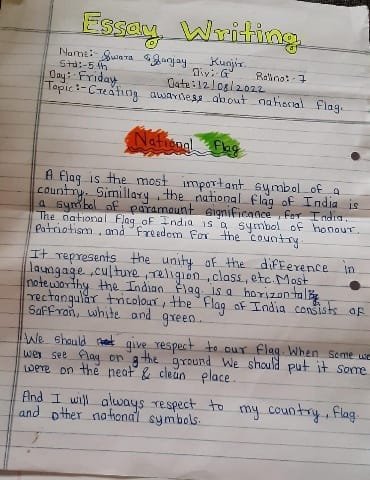 Essay Writing
Name:- Swara Sanjay Kunjir.
Std:- 5th Div:- G Rollno:- 7
Day:- Friday Date:- 12/08/2022
Topic:- Creating awarness about national flag.
National Flag
A flag is the most important symbol of a
country. Simillary, the national flag of India is
a symbol of paramount significance, for India.
The national Flag of India is a symbol of honour.
Patriotism, and Freedom For the country.
It represents the unity of the difference in
laungage, culture, religion, class, etc. Most
noteworthy the Indian Flag. is a horizontal
rectangular tricolour, the flag of India consists of
Saffron, white and green.
We should give respect to our flag. When some we
wer see flag on the ground We should put it some
were on the neat & clean place.
And I will always respect to my country, flag
and other national symbols.